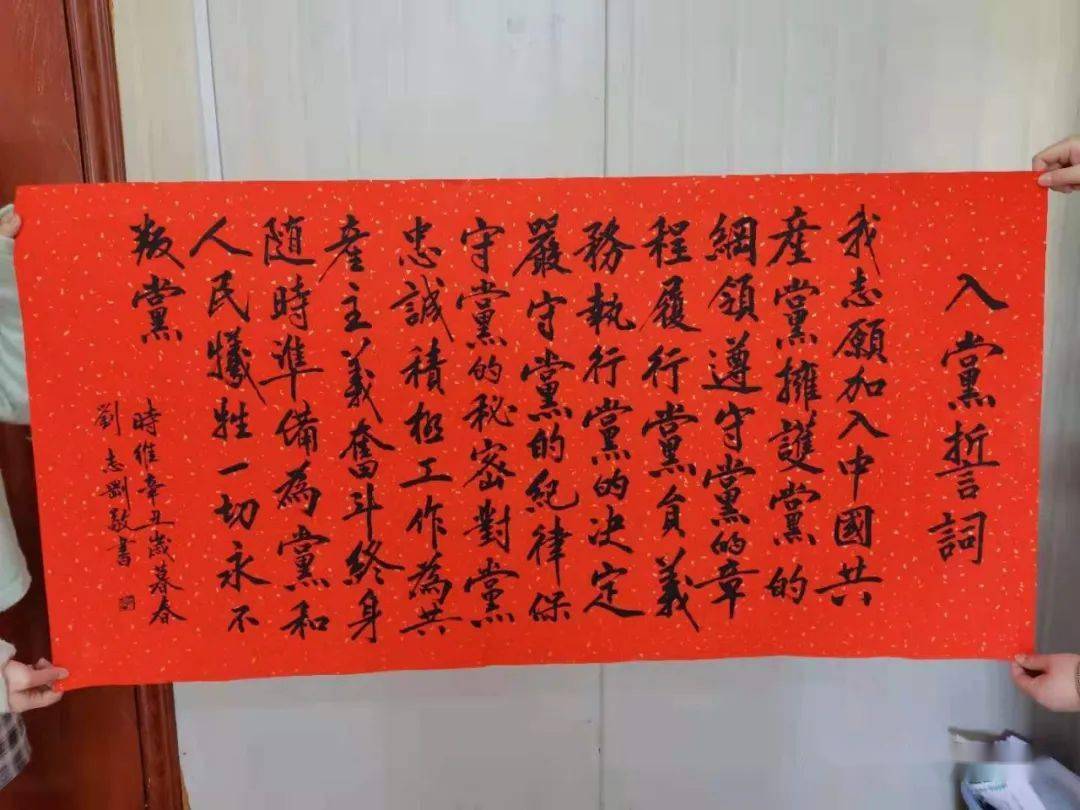 入黨誓詞
我志願加入中國共
産黨擁護黨的
綱領遵守黨的章
程履行黨員義
務執行黨的决定
嚴守黨的紀律保
守黨的秘密對黨
忠誠積極工作為共
産主义奮斗終身
随時準備為黨和
人民犧牲一切永不
叛黨
時維辛丑歲暮春
劉志剛敬書